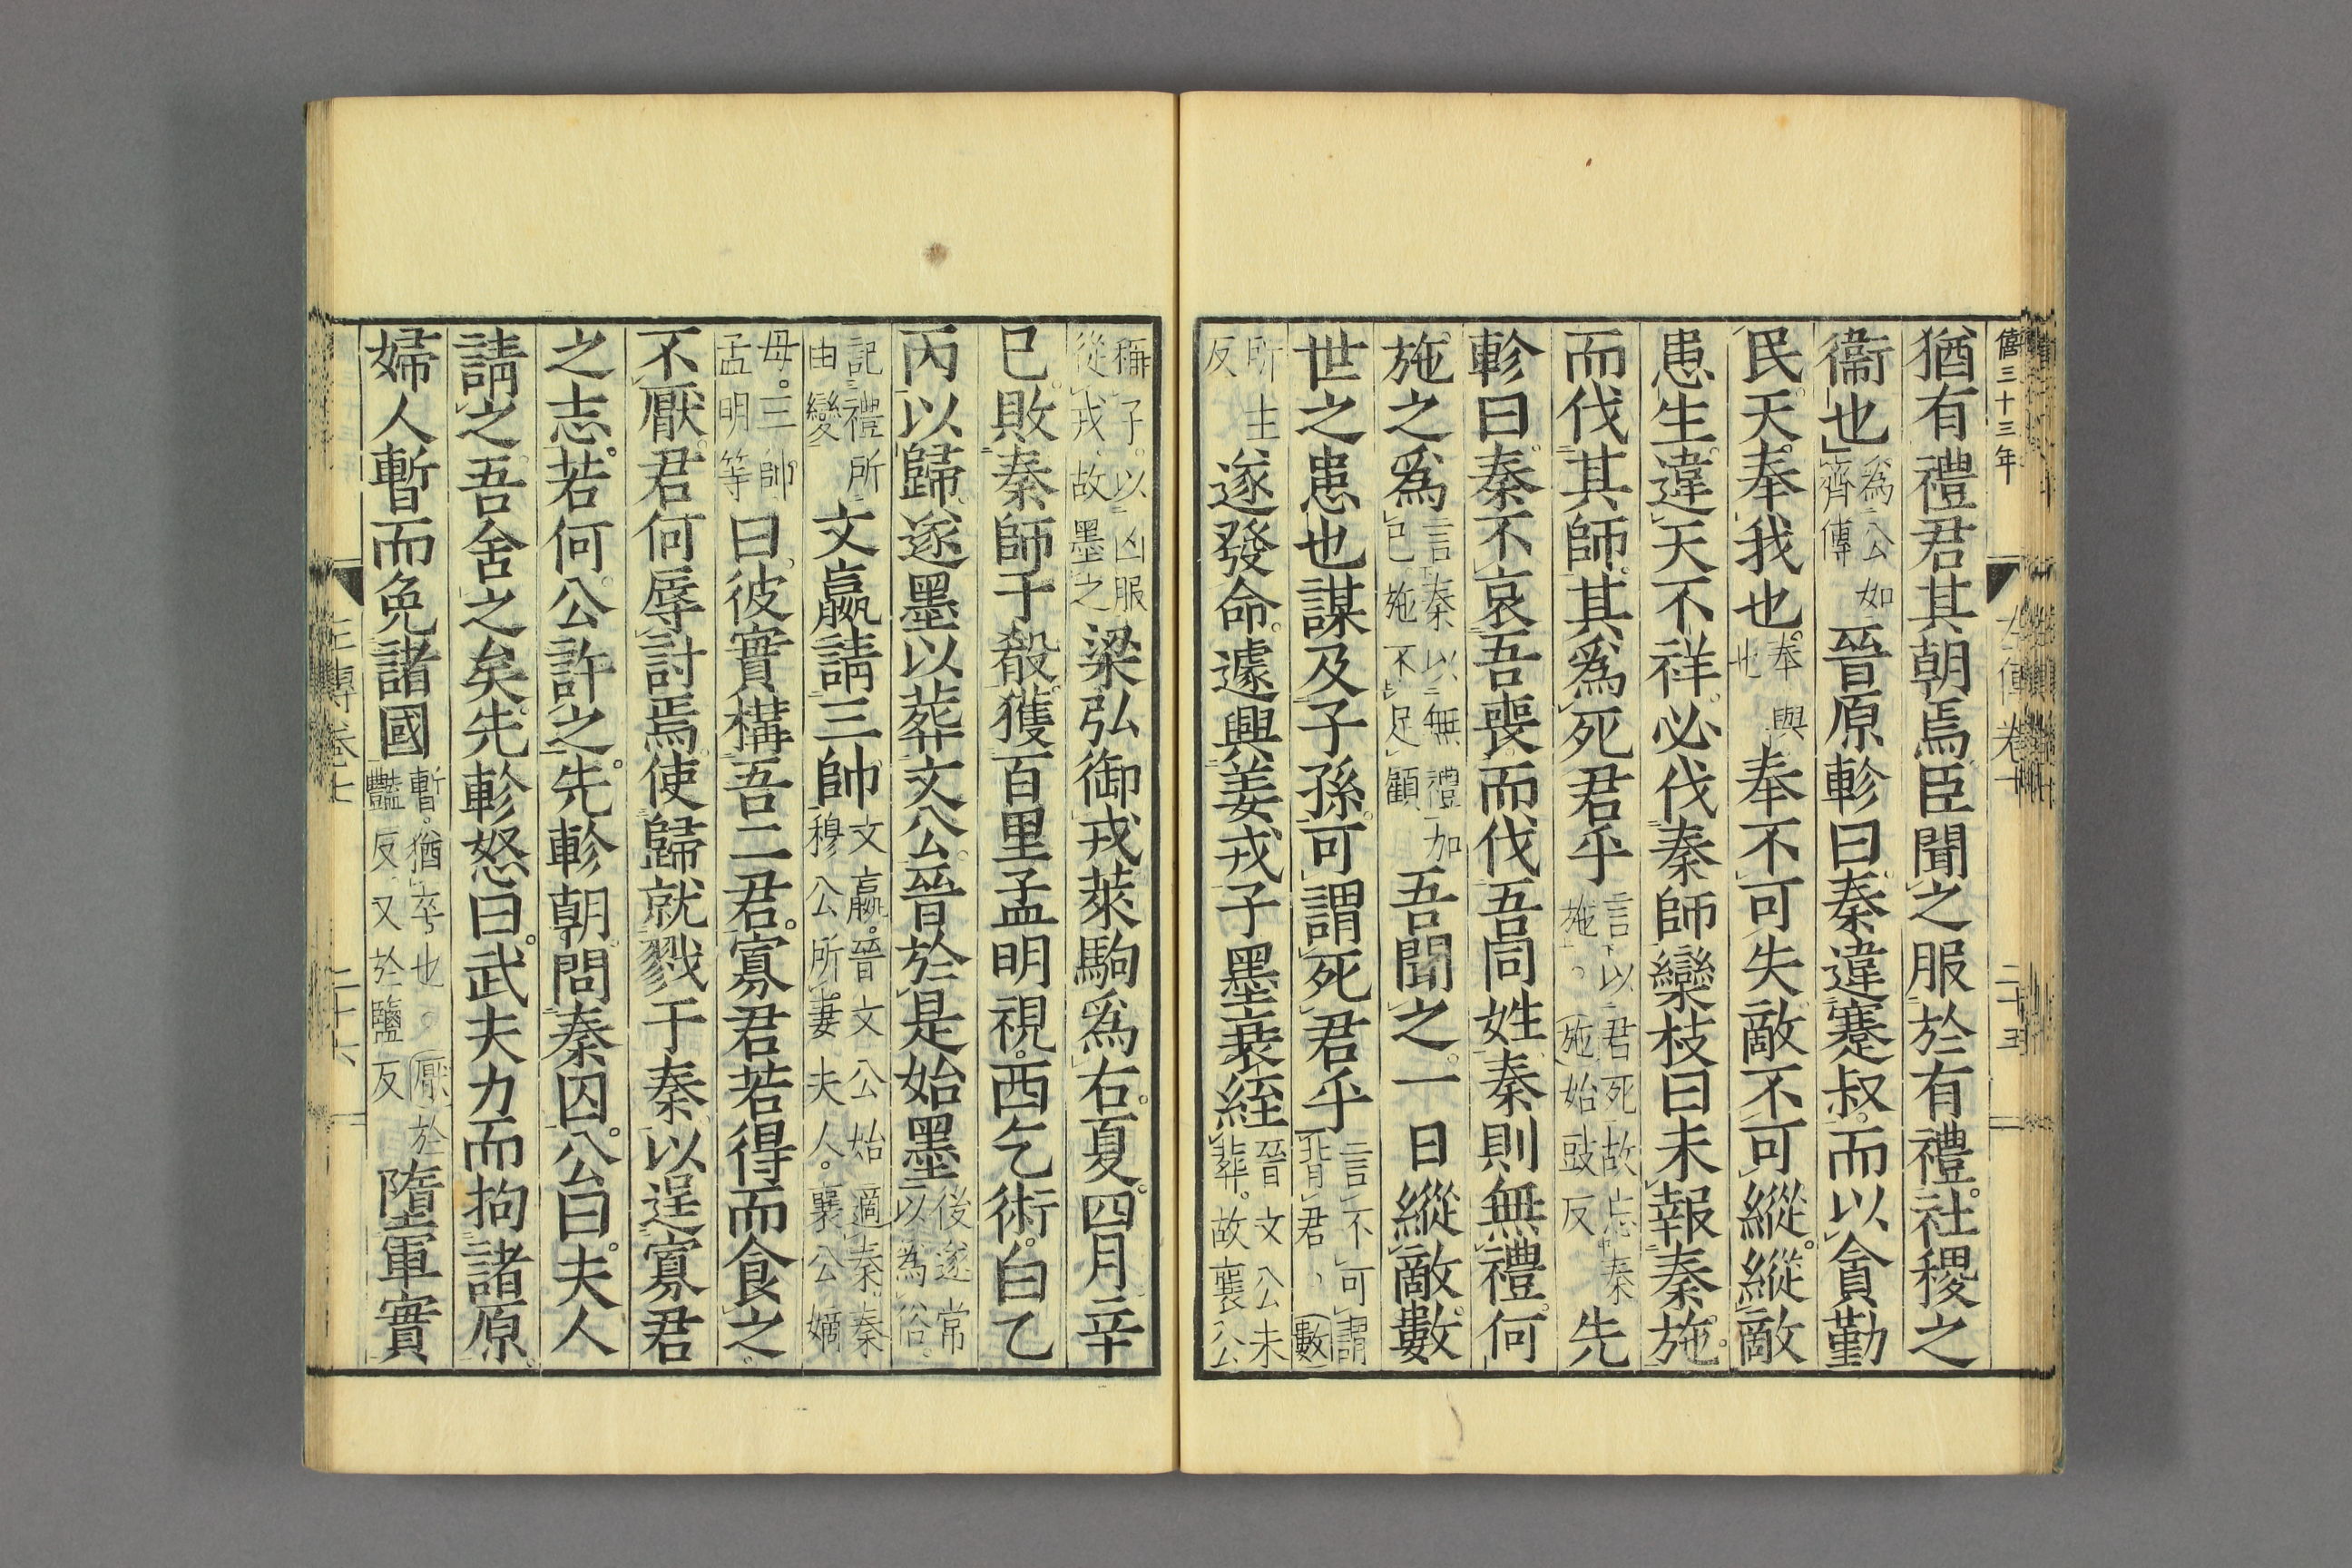 僖三十三年
猶有禮君其朝焉臣聞之服於有禮社稷之
衞也爲公如齊傳晉原軫曰秦違蹇叔而以貪勤
民天奉我也奉與也奉不可失敵不可縱縱敵
患生違天不祥必伐秦師欒枝曰未報秦施
而伐其師其爲死君乎言以君死故忘秦施。施始豉反先
軫曰秦不哀吾喪而伐吾同姓秦則無禮何
施之爲言秦以無禮加己施不足顧吾聞之一日縱敵數
世之患也謀及子孫可謂死君乎言不可謂背君、數
所主反遂發命遽興姜戎子墨衰絰晉文公未葬故襄公
稱子以凶服從戎故墨之梁弘御戎萊駒爲右夏四月辛
巳敗秦師于殽獲百里孟明視西乞術白乙
丙以歸遂墨以葬文公晉於是始墨後遂常以為俗
記禮所由變文嬴請三帥文嬴晉文公始適秦秦穆公所妻夫人襄公嫡
母三帥孟明等曰彼實構吾二君寡君若得而食之
不厭君何辱討焉使歸就戮于秦以逞寡君
之志若何公許之先軫朝問秦囚公曰夫人
請之吾舍之矣先軫怒曰武夫力而拘諸原
婦人暫而免諸國暫猶卒也。厭於豔反又於鹽反墮軍實
左傳卷七
二十五
左傳卷七
二十六